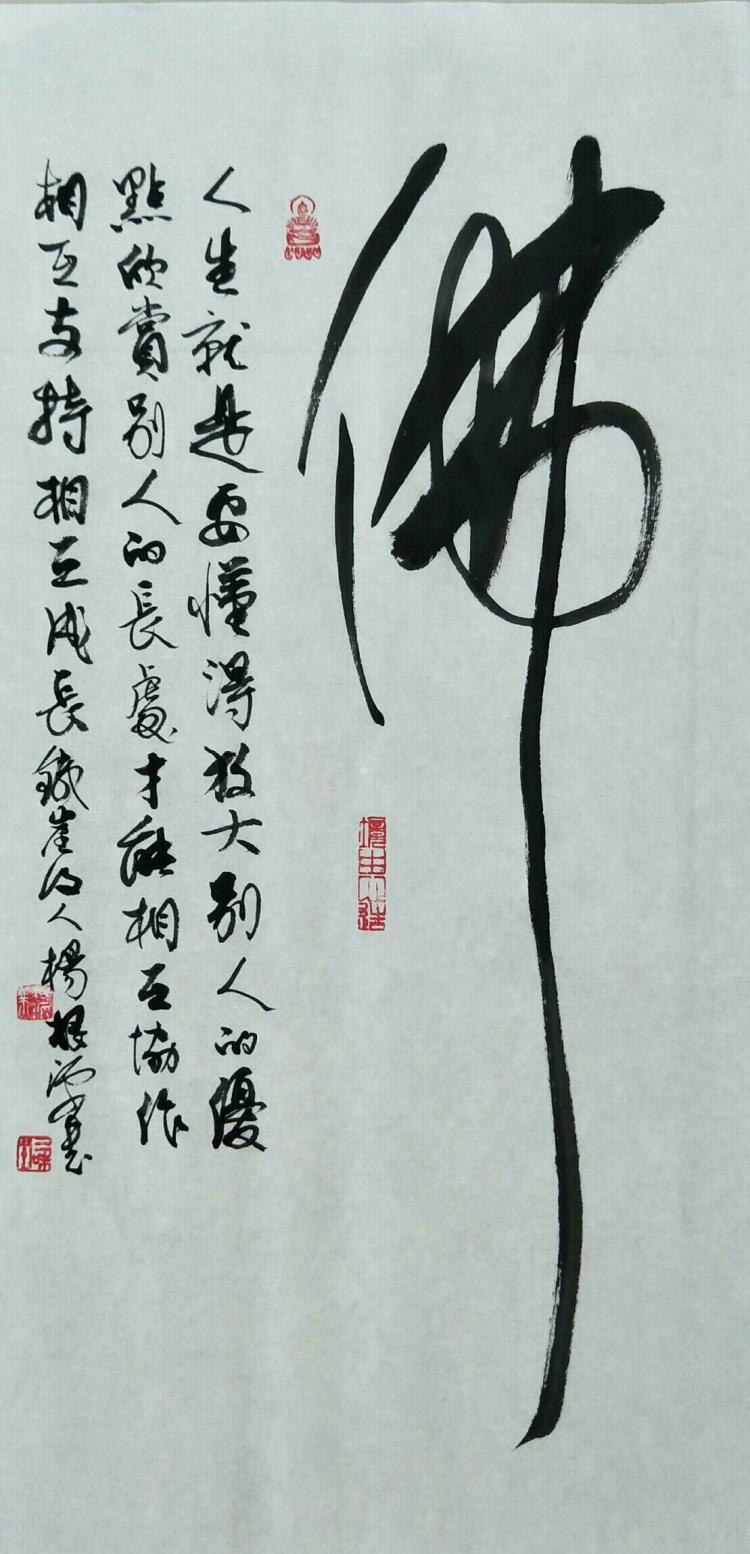 佛
人生就是要懂得放大别人的優
點欣賞别人的長處才能相互協作
相互支持相互成長鐵崖道人楊根源書